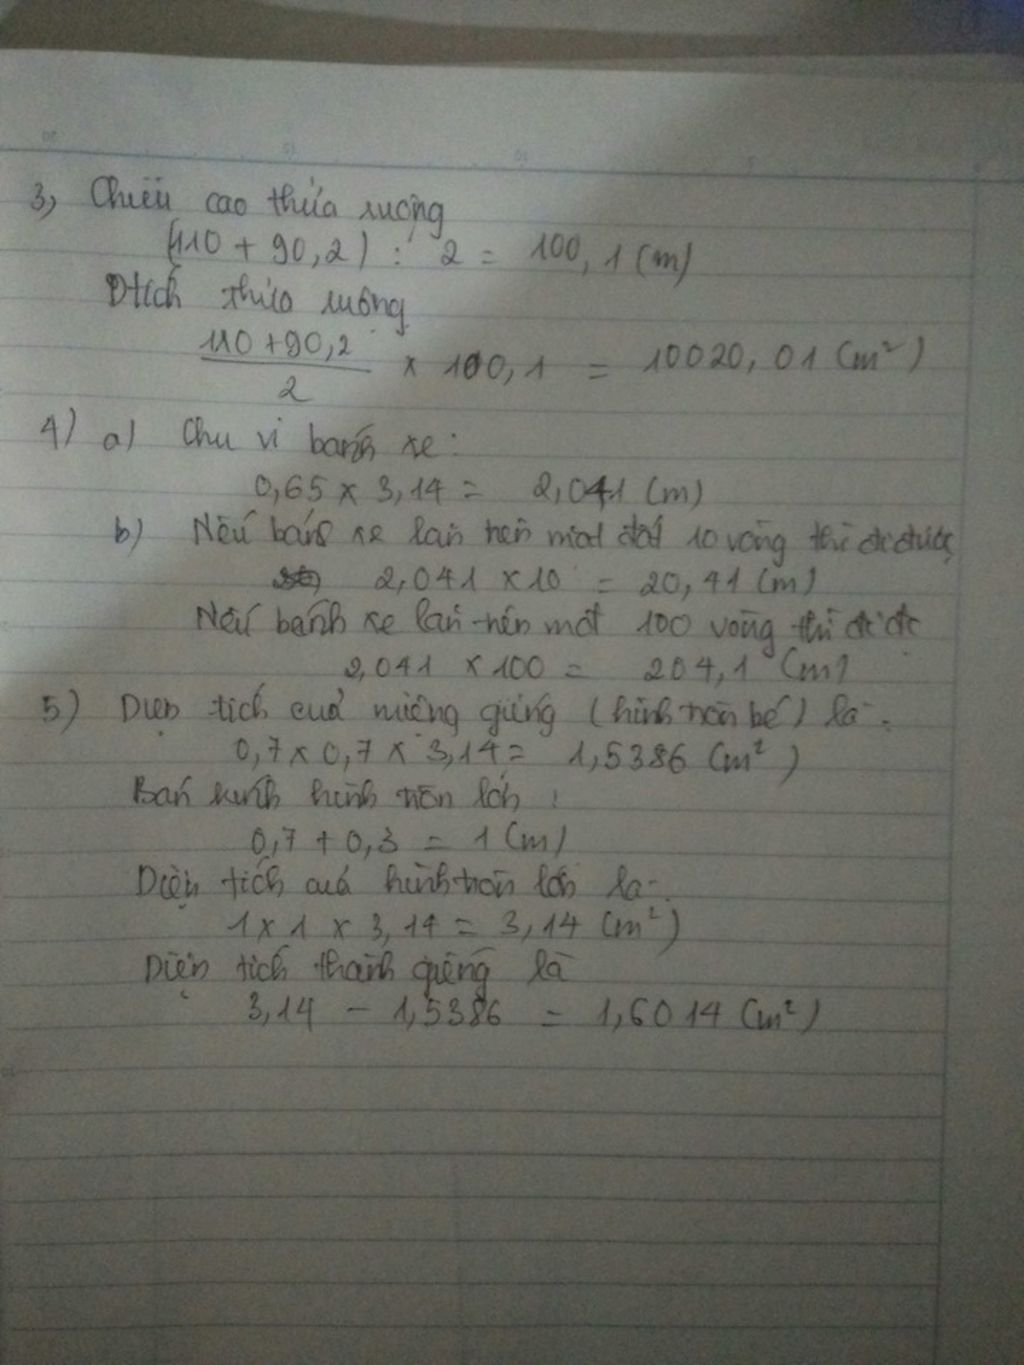 3) Chiều cao thửa ruộng
(110 + 90,2) : 2 = 100,1 (m)
Dtích thửa ruộng
110 + 90,2 / 2 × 100,1 = 10020,01 (m²)
4) a) Chu vi bánh xe:
0,65 × 3,14 = 2,041 (m)
b) Nếu bánh xe lăn trên mặt đất 10 vòng thì đi được
2,041 × 10 = 20,41 (m)
Nếu bánh xe lăn trên mđ 100 vòng thì đi đc
2,041 × 100 = 204,1 (m)
5) Diện tích của miệng giếng (hình tròn bé) là:
0,7 × 0,7 × 3,14 = 1,5386 (m²)
Bán kính hình tròn lớn :
0,7 + 0,3 = 1 (m)
Diện tích của hình tròn lớn là:
1 × 1 × 3,14 = 3,14 (m²)
Diện tích thành giếng là
3,14 - 1,5386 = 1,6014 (m²)